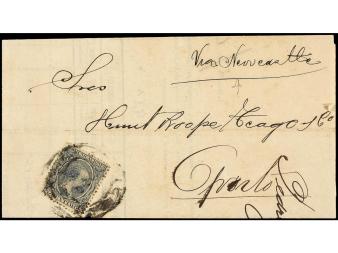 Via Newcastle
Sres
Hunt Roope Teage y Co
Oporto